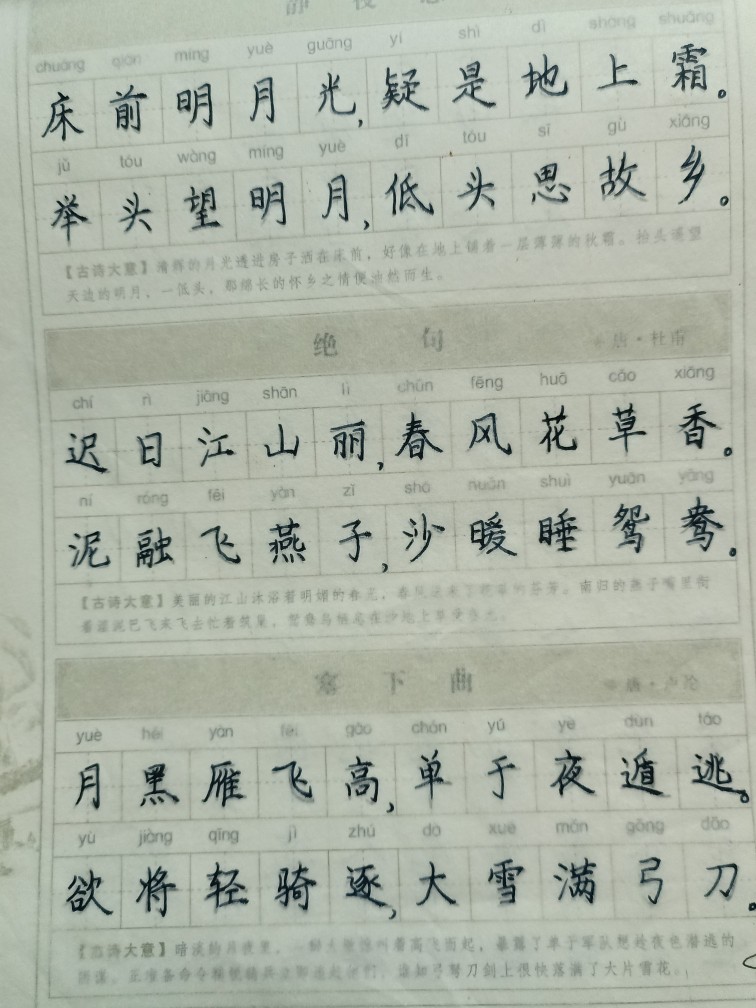 静夜思
chuáng qián míng yuè guāng yí shì dì shàng shuāng
床前明月光,疑是地上霜。
jǔ tóu wàng míng yuè dī tóu sī gù xiāng
举头望明月,低头思故乡。
【古诗大意】清辉的月光透进房子洒在床前，好像在地上铺着一层薄薄的秋霜。抬头遥望
天边的明月，一低头，那绵长的怀乡之情便油然而生。
绝句 唐·杜甫
chí rì jiāng shān lì chūn fēng huā cǎo xiāng
迟日江山丽,春风花草香。
ní róng fēi yàn zǐ shā nuǎn shuì yuān yāng
泥融飞燕子,沙暖睡鸳鸯。
【古诗大意】美丽的江山沐浴着明媚的春光，春风送来了花草的芬芳。南归的燕子嘴里衔
着湿泥巴飞来飞去忙着筑巢，鸳鸯鸟栖息在沙地上享受春光。
塞下曲 唐·卢纶
yuè hēi yàn fēi gāo chán yú yè dùn táo
月黑雁飞高,单于夜遁逃。
yù jiàng qīng jì zhú dà xuě mǎn gōng dāo
欲将轻骑逐,大雪满弓刀。
【古诗大意】暗淡的月夜里，一群大雁惊叫着高飞而起，暴露了单于军队想趁夜色潜逃的
阴谋。正准备命令轻骑，谁知弓弩刀剑上很快落满了大片雪花。